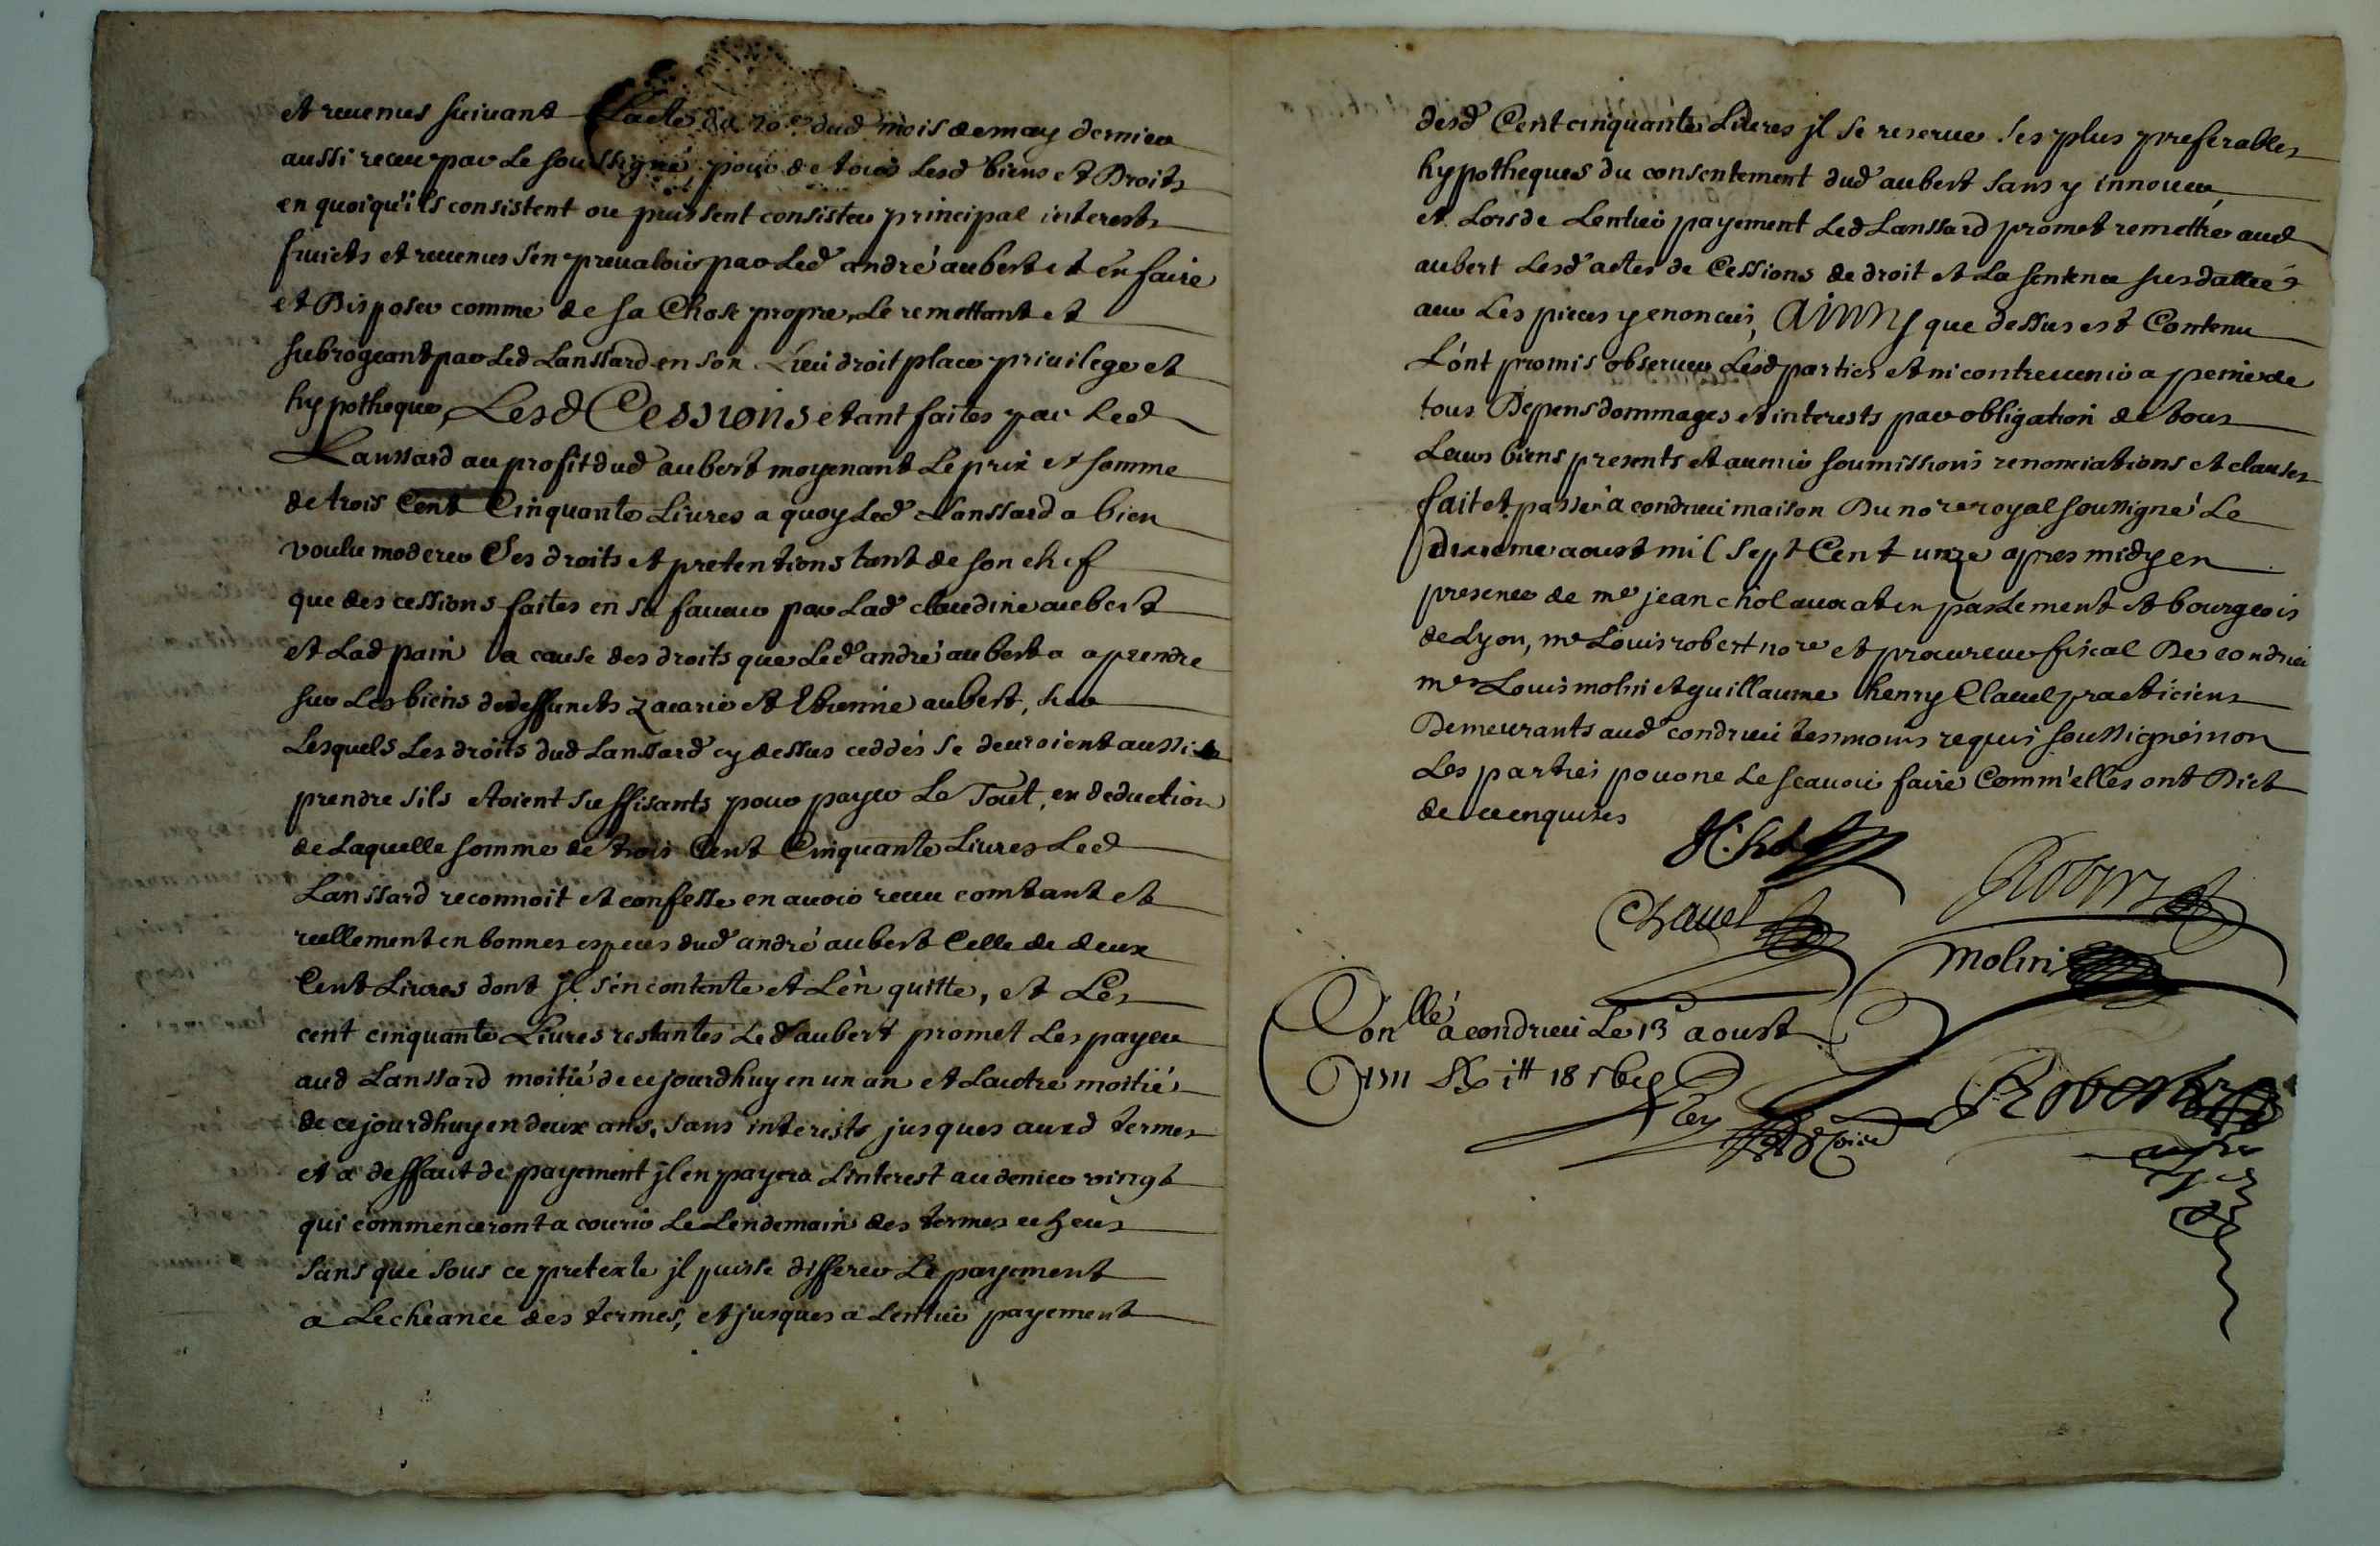 et reuenus suiuant Lacte du 20e dud mois de may dernier
aussi receu par Le soussigné pour de tous lesd biens et Droits
en quoiqu'ils consistent ou puissent consister principal interests
fruicts et reuenus s'en preualoir par Led andré aubert et en faire
et Disposer comme de sa Chose propre, Le remettant et
subrogeant par Led Lanssard en son Lieu droit place priuilege et
hypotheque, Lesd Cessions etant faites par Led
Lanssard au profit dud aubert moyenant Le prix et somme
de trois Cent Cinquante Liures a quoy Led Lanssard a bien
voulu moderer Ses droits et pretentions tant de son chef
que des cessions faites en sa faueur par Lad claudine aubert
et Lad pain a cause des droits que Led andré aubert a a prendre
sur Les biens de deffuncts zacarie et Etienne aubert, sur
Lesquels Les droits dud Lanssard cy dessus ceddés se deuroient aussi
prendre sils etoient suffisants pour payer Le Tout, en deduction
de Laquelle somme de trois Cent Cinquante Liures Led
Lanssard reconnoit et confesse en auoir receu comtant et
reellement en bonnes especes dud andré aubert Celle de deux
Cent Liures dont jl s'en contente et L'en quitte, et Les
cent cinquante Liures restantes Led aubert promet Les payer
aud Lanssard moitié de ce jourdhuy en un an et Lautre moitié
de ce jourdhuy en deux ans, sans interests jusques auxd termes
et a deffaut de payement jl en payera L'interest au denier vingt
qui commenceront a courir Le Lendemain des termes echeus
sans que sous ce pretexte jl puisse differer Le payement
a Lecheance des termes, et jusques a Lentier payement
desd Cent cinquante Liures jl se reserue ses plus preferables
hypotheques du consentement dud aubert sans y innouer
et Lors de Lentier payement Led Lanssard promet remettre aud
aubert Lesd actes de Cessions de droit et La sentence susdattée
auec Les pieces y enoncées, Ainsy que dessus est Contenu
L'ont promis obseruer Lesd parties et ni contreuenir a peine de
tous Depens dommages et interests par obligation de tous
Leurs biens presents et auenir soumissions renonciations et clauses
fait et passé a condrieu maison Du nore royal soussigné Le
dixieme aoust mil Sept Cent unze apres midy en
presence de me jean chol auocat en parlement et bourgeois
de Lyon, me Louis robert nore et procureur fiscal De condrieu
mes Louis molin et guillaume henry Clauel practiciens
Demeurants aud condrieu tesmoins requis soussignés non
Les parties pour ne Le scauoir faire Comm'elles ont Dict
de ce enquises
Chol
Robert
Clauel
Molin
Conllé a condrieu Le 13 aoust
1711
Rey
Robert